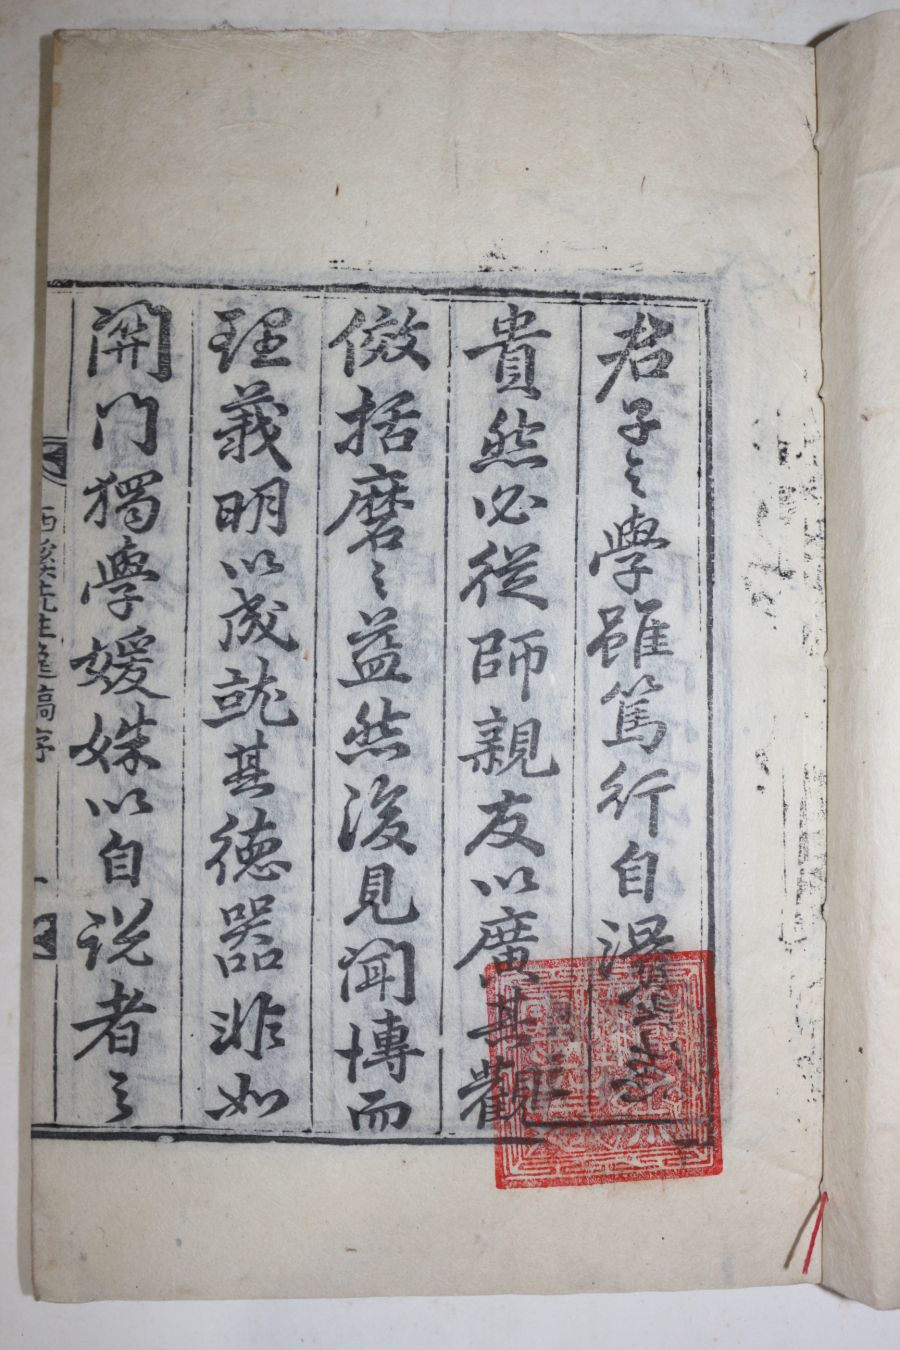 君子之學雖篤行自得
貴然必從師親友以廣其觀
倣括磨之益然後見聞博而
理義明以成就其德器非如
關門獨學媛姝以自說者之
西溪先生遺稿序